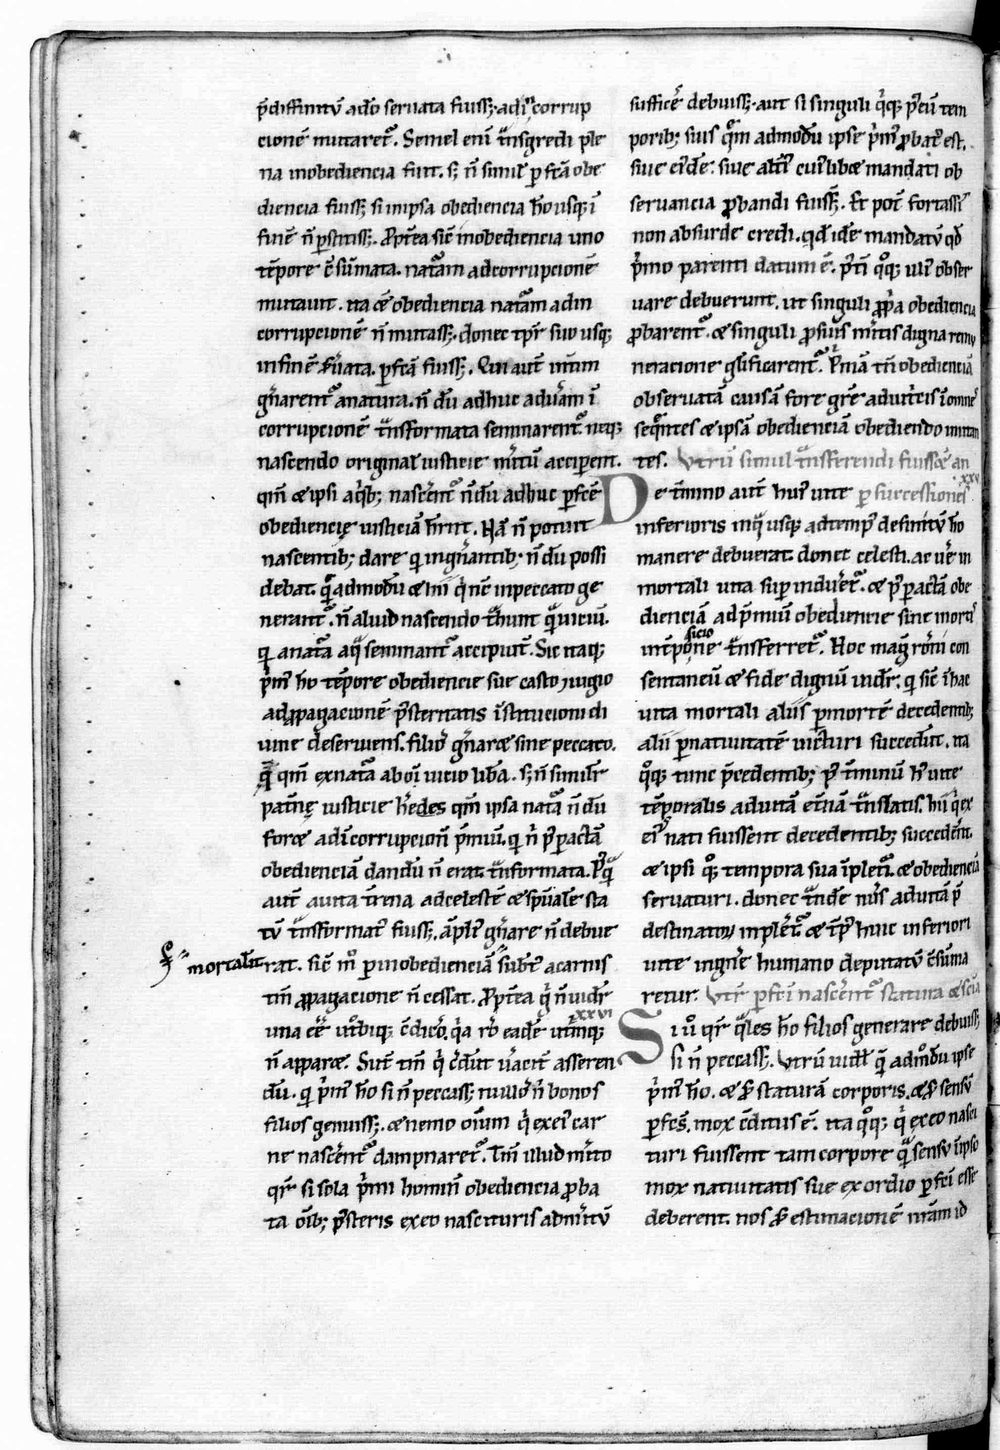 p̄diffinitū adō seruata fuiss;. ad ī corrup
cionē mutaret᷑. Semel eni t̄nsgredi ple
na inobediencia fuit. s; n̄ simil᷑ p̱fc̄a obe
diencia fuiss; si in ipsa obediencia h̄o usq; ī
finē n̄ p̱stitiss;. Ꝓpt̄ea sic̄ inobediencia uno
tēpore c̄sūmata. nat᷑am ad corrupcionē
mutauit. ita &̄ obediencia nat᷑am ad in
corrupcionē n̄ mutass;. donec tp̄r suo usq;
in finē ẜuata. p̱fc̄a fuiss;. Qui aut̄ int̄im
gn̄arent᷑ a natura. n̄ dū adhuc ad uᷓam ī
corrupcionē t̄nsformata seminarent᷑. neq;
nascendo original᷑ iusticie m̄itū acciperent.
qm̄ & ipsi a q̇b; nascēnt᷑ n̄dū adhuc p̱fc̄ē
obediencię iusticiā h̄rnt. Ha᷑ n̄ potuit
nascentib; dare q ingn̄antib; n̄ dū possi
debat. q̄ᷓadmodū & im̄ q̇ nc̄ in peccato ge
nerant᷑. n̄ aliud nascendo t̄hunt q̄ᷓ uiciū.
q a nat᷑a a q̄ᷓ seminant᷑ accipiūt. Sic itaq;
p̄m᷒ h̄o tēpore obediencie sue casto ꝯiugio
ad ꝓpagacionē p̄steritatis īstitucioni di
uine deseruiens. filiō gn̄are sine peccato.
q̄ᷓ qm̄ ex nat᷑a ab oī uicio lib̄a. s; n̄ simil᷑r
patn̄ę iusticie h̄edes qm̄ ipsa nat᷑a n̄ dū
forte ad īcorrupcion̄ p̄miū. q n̄ p᷒ p̱actā
obedienciā dandū n̄ erat. t̄nformata. P᷒q̄ᷓ
aut̄ a uita t̄rena ad celestē & sp̄uale sta
tū t̄nsformat᷒ fuiss;. āpli᷒ gn̄are n̄ debue
mortalit̄ rat. sic̄ m̊ p̱ inobedienciā sub̄t᷒ a carnis
tm̄ ꝓpagacione n̄ cessat. Ꝓpt̄ea q̇ n̄ uid᷑r
una c̄ē utrobiq; c̄dicō. q̇a r̄b eadē utrimq;
n̄ apparꝫ. Sunt tm̄ q̇ c̄dūt uᷓacit̄ asseren
dū. q p̄m᷒ h̄o si n̄ peccass; nullō n̄ bonos
filios genuiss;. & nemo om̄um q̇ ex ei᷒ car
ne nascēnt᷑ dampnaret᷑. Tm̄ illud m̄ito
q᷑r si sola p̄mi homin̄ obediencia ꝓba
ta om̄ib; p᷒steris ex eo nascituris ad m̄itū
sufficē debuiss;. aut si singuli q̇q; p̱ eū tem
porib; suis q̄m admodū ipse p̄m᷒ ꝓbat᷒ est.
siue ei᷒dē. siue alt̄i᷒ cui᷒libꝫ mandati ob
seruancia ꝓbandi fuiss;. Et pot̄ fortassi᷒
non absurde credi. qd̄ idē mandatū qd̄
p̄mo parenti datum ē. p᷒ti qͦq; illi᷒ obser
uare debuerunt. ut singuli ꝓp̄a obediencia
ꝓbarent᷑. & singuli ꝓ suis m̄itis digna remu
neracione gl̄ificarent᷑. P̄mā tn̄ obedienciā
obseruatā causā fore gr̄e aduit̄eis ī omne᷒
seqn̄tes & ipsā obedienciā obediendo imitan
tes. Vtrū simul t̄nsferendi fuiss& an
xxv
De t̄mino aut̄ hui᷒ uite p̱ successiones
inferioris in q̄ᷓ usq; ad temp᷒ definitū h̄o
manere debuerat. donec celesti. ac uē in
mortali uita sup̱induēt᷑. & p᷒ p̱actā obe
dienciā ad p̄miū obediencie sine morti᷒
int̄posicione t̄nsferret᷑. Hoc mag᷒ rōni con
sentaneū & fide dignū uid᷑r. q sic̄ ī hac
uita mortali aliis p̱ mortē decedentib;
alii p̱ natiuitatē uicturi succedūt. ita
qͦq; tunc p̄cedentib; p᷒ t̄minū h᷒ uite
tēporalis ad uitā et̄nā t̄nslatis. hii q̇ ex
ei᷒ nati fuissent decedentib; succedēnt.
& ipsi qͦq; tempora sua īpletu᷑i. & obedienciā
seruaturi. donec t̄ndē nūs ad uitā p̄
destinatoꝝ inplēt᷑ & tēp᷒ huic inferiori
uite ingn̄e humano deputatū c̄suma
retur. Vtr̄ p̱fc̄i nascēnt᷑ statura & sc̄ia
xxvi
Si u̇ q᷑r q̄les h̄o filios generare debuiss;
si n̄ peccass;. Vtrū uidel᷑ q̄ admodū ipse
p̄m᷒ h̄o. & ẜ staturā corporis. & ẜ sensū
p̱fc̄s. mox c̄ditus ē. ita qͦq; q̇ ex eo nasci
turi fuissent tam corpore q̄ᷓ sensu īn ipso
mox natiuitatis sue exordio p̱fc̄i esse
deberent. nos ẜ estimacionē nr̄am id